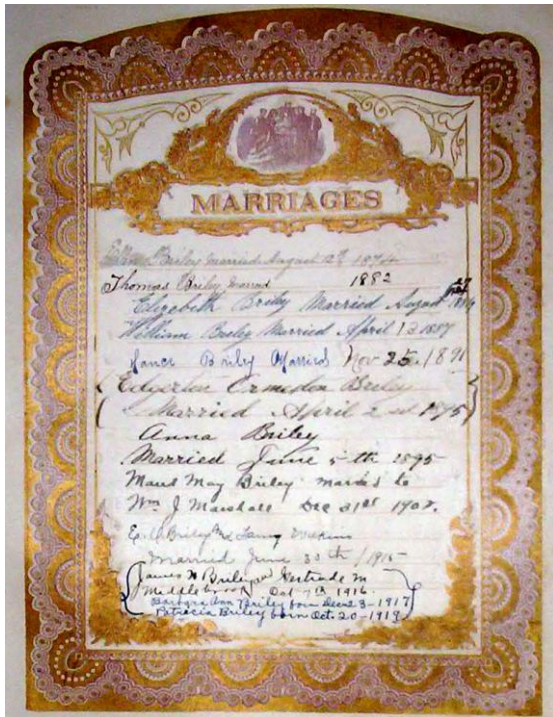 MARRIAGES
Briley Married August 12th 1874
Thomas Briley Married 1882
Elizabeth Briley Married August 27
William Briley Married April 13 1887
Briley Married Nov 25. 1891
Edgerton Ormiston Briley
Married April 2nd 1895
Anna Briley
Married June 5th 1895
Maud May Briley married to
Wm J Marshall Dec 31st 1902.
E. O Briley
Married June 30th / 1915
James H Briley and Gertrude M
Middlebrook Oct 7th 1916.
Barbara Ann Briley born Dec 23-1917
Patricia Briley born Oct. 20-1919